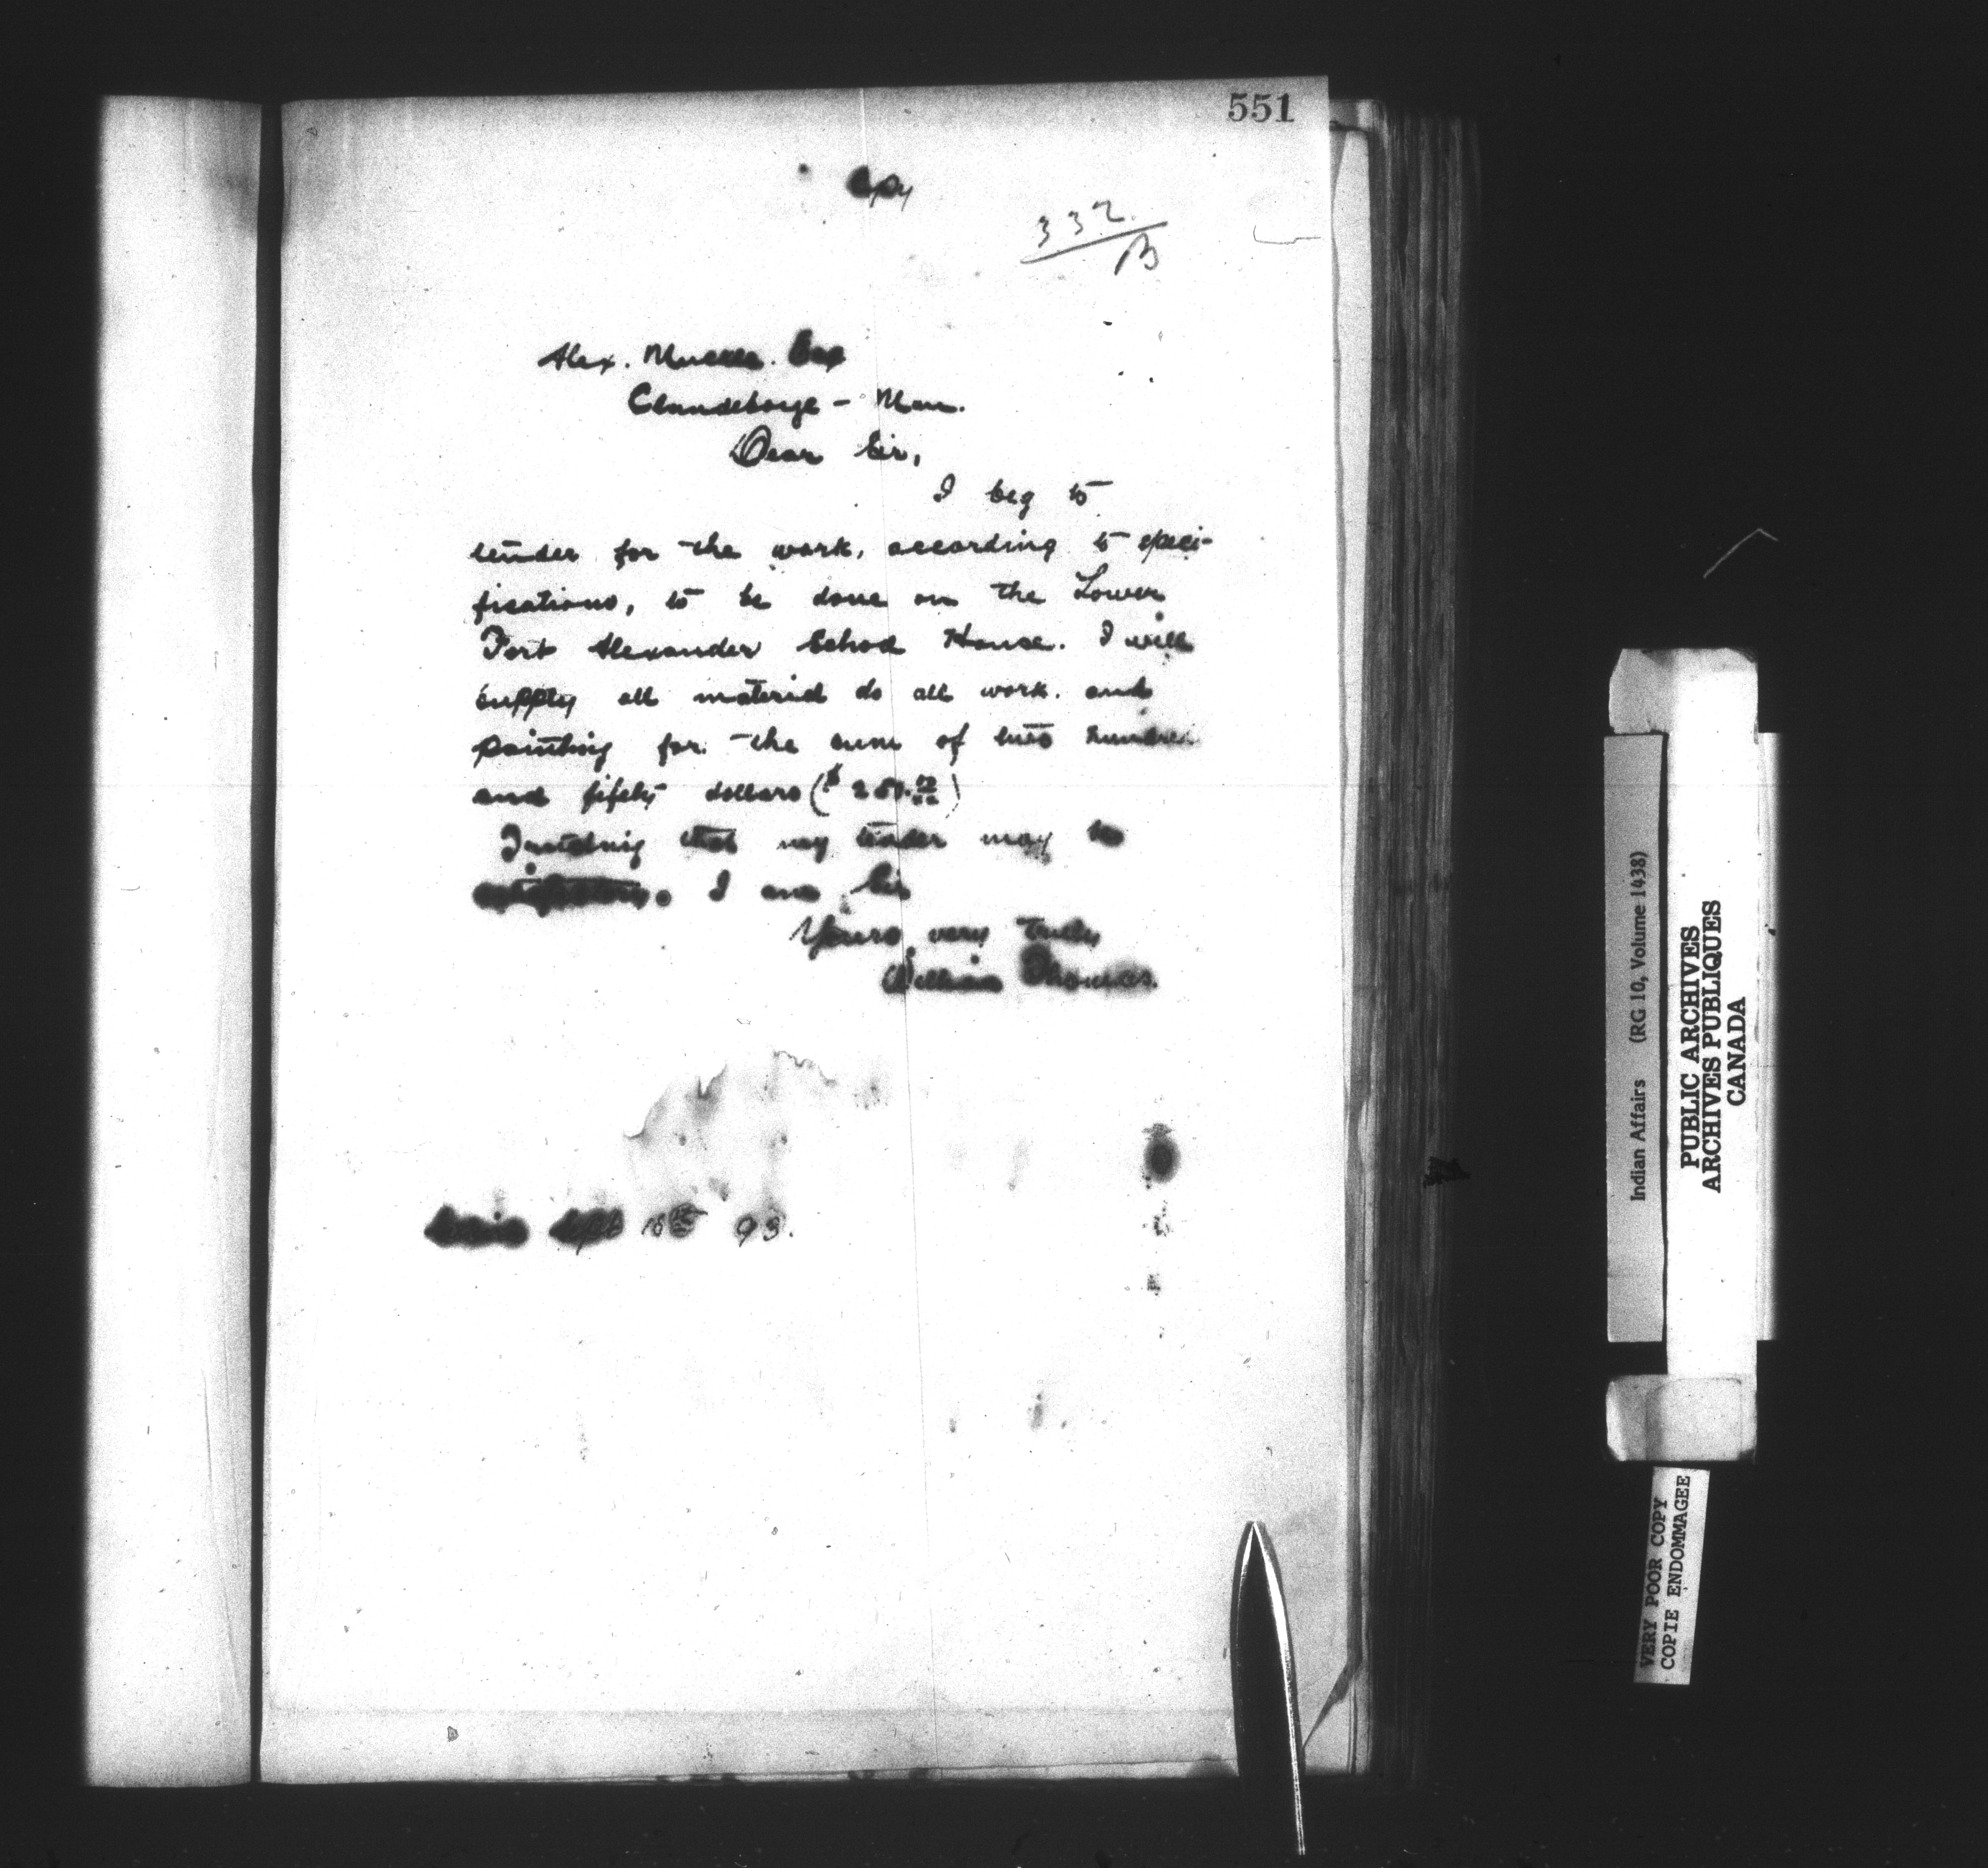 551
Copy
332
B
Alex. Muckle. Esq
Clandeboye - Man.
Dear Sir,
I beg to
tender for the work, according to speci-
fications, to be done on the Lower
Fort Alexander School House. I will
supply all material do all work. and
painting for the sum of two hundred
and fifety dollars ($ 250.
Trusting that my tender may be
I am Sir
Yours very truly
William Thomas.
Sept 16th 93.
Indian Affairs (RG 10, Volume 1438)
PUBLIC ARCHIVES
ARCHIVES PUBLIQUES
CANADA
VERY POOR COPY
COPIE ENDOMMAGEE